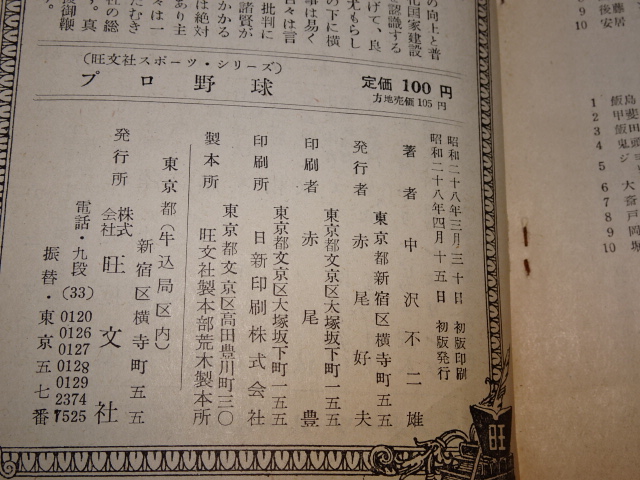 の向上と普
化国家建設
認識する
げて、良
尤もらし
の下に横
事は易く
々は言
批判に
諸賢が
かかる
は絶対
あり主
々は一
たむき
社の総
す。真
援御鞭
(旺文社スポーツ・シリーズ)
プロ野球
定価 100 円
地方売価 105 円
昭和二十八年三月三十日 初版印刷
昭和二十八年四月十五日 初版発行
著者 中沢不二雄
東京都新宿区横寺町五五
発行者 赤尾好夫
東京都文京区大塚坂下町一五五
印刷者 赤尾豊
東京都文京区大塚坂下町一五五
印刷所 日新印刷株式会社
東京都文京区高田豊川町三〇
製本所 旺文社製本部荒木製本所
東京都(牛込局区内)
新宿区横寺町五五
発行所 株式会社 旺文社
電話・九段(33) 0120
0126
0127
0128
0129
2374
7525
振替・東京五七番
旺
9 後藤
10 安居
1 飯島
2 甲斐
3 飯田
4 鬼頭
5 ジ
6 大
7 斎
8 戸
9 岡
10 堀